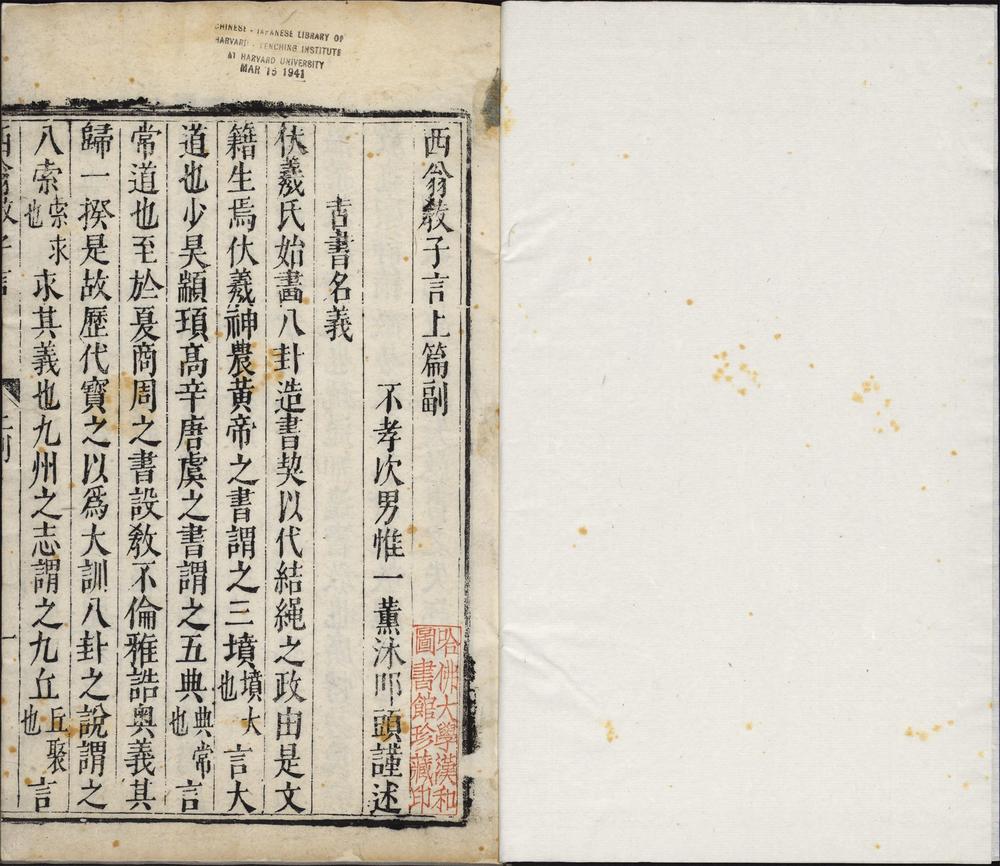 CHINESE - JAPANESE LIBRARY OF
HARVARD - YENCHING INSTITUTE
AT HARVARD UNIVERSITY
MAR 15 1941
西翁敎子言上篇副
不孝次男惟一薰沐叩頭謹述
古書名義
伏羲氏始畫八卦造書契以代結繩之政由是文
籍生焉伏羲神農黃帝之書謂之三墳墳大也言大
道也少昊顓頊高辛唐虞之書謂之五典典常也言
常道也至於夏商周之書設敎不倫雅誥奥義其
歸一揆是故歷代寶之以爲大訓八卦之說謂之
八索索求也求其義也九州之志謂之九丘丘聚也言
西翁敎子言
一
哈佛大學漢和
圖書館珍藏印